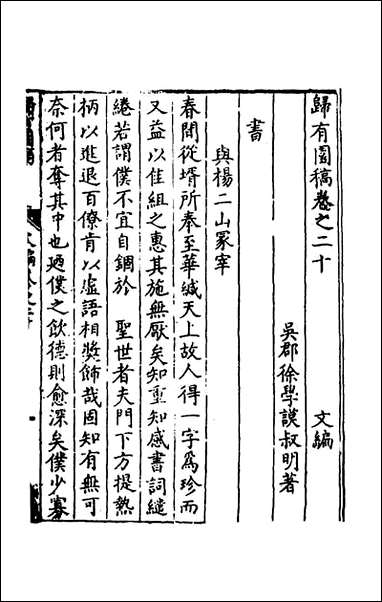 歸有園稿卷之二十　文編
吳郡徐學謨叔明著
書
與楊二山冢宰
春間從壻所奉至華緘天上故人得一字爲珍而
又益以佳組之惠其施無厭矣知重知感書詞繾
綣若謂僕不宜自錮於　聖世者夫門下方提熱
柄以進退百僚肯以虛語相獎飾哉固知有無可
奈何者奪其中也廼僕之飲德則愈深矣僕少寡